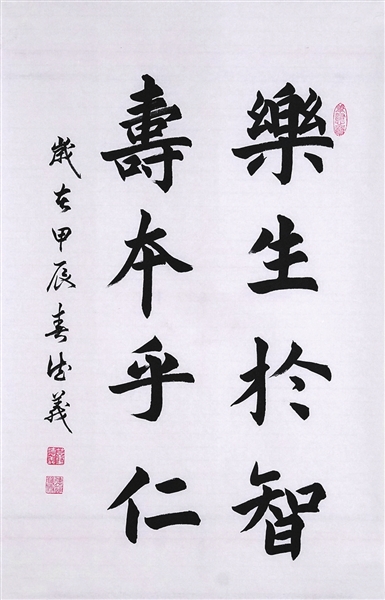 樂生於智
壽本乎仁
歲在甲辰春志義